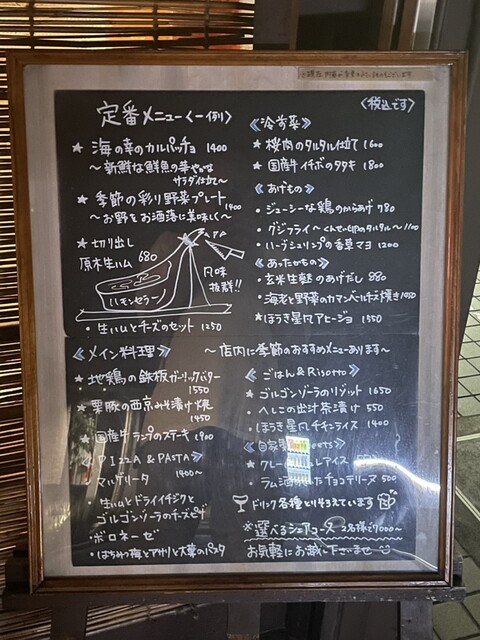 定番メニュー＜一例＞
〈税込です〉
★ 海の幸のカルパッチョ 1400
〜新鮮な鮮魚の華やかな
サラダ仕立て〜
★ 季節の彩り野菜プレート
1400
〜お野をお洒落に美味しく〜
★ 切り出し
原木生ハム 680
風味
抜群!!
・生ハムとチーズのセット 1250
《冷前菜》
★ 桜肉のタルタル仕立て 1600
★ 国産牛イチボのタタキ 1800
《あげもの》
・ジューシーな鶏のからあげ 780
・〜くんせい卵のタルタル〜 1100
の香草マヨ 1200
《あったかもの》
・玄米生麩のあげだし 880
・海老と野菜のカマンベールチーズ焼き 1050
★ ほうき星風アヒージョ 1550
《メイン料理》
〜店内に季節のおすすめメニューあります〜
★ 地鶏の鉄板ガーリックバター
1550
★ 栗豚の西京みそ漬け焼
1450
・国産牛ランプのステーキ 1900
《PIZZA & PASTA》
・マルゲリータ 1400〜
・生ハムとドライイチジクと
ゴルゴンゾーラのチーズピザ
・ボロネーゼ
・はちみつ梅とアサリと大葉のパスタ
《ごはん&Risotto》
★ ゴルゴンゾーラのリゾット 1650
・へしこの出汁茶漬け 550
・ほうき星風チキンライス 1400
《自家製
・ラム酒 チョコテリーヌ 500
ドリンク各種とりそろえています
※選べるシェアコース 2名様で7000〜
お気軽にお越し下さいませ